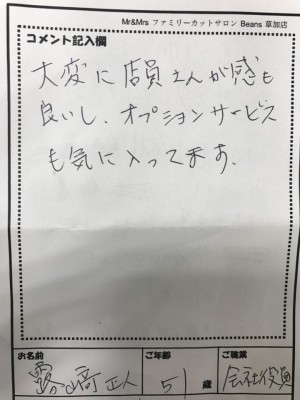 Mr&Mrs ファミリーカットサロン Beans 草加店
コメント記入欄
大変に店員さんが感も
良いし、オプションサービス
も気に入ってます。
お名前
ご年齢
ご職業
露崎 正人
51 歳
会社役員